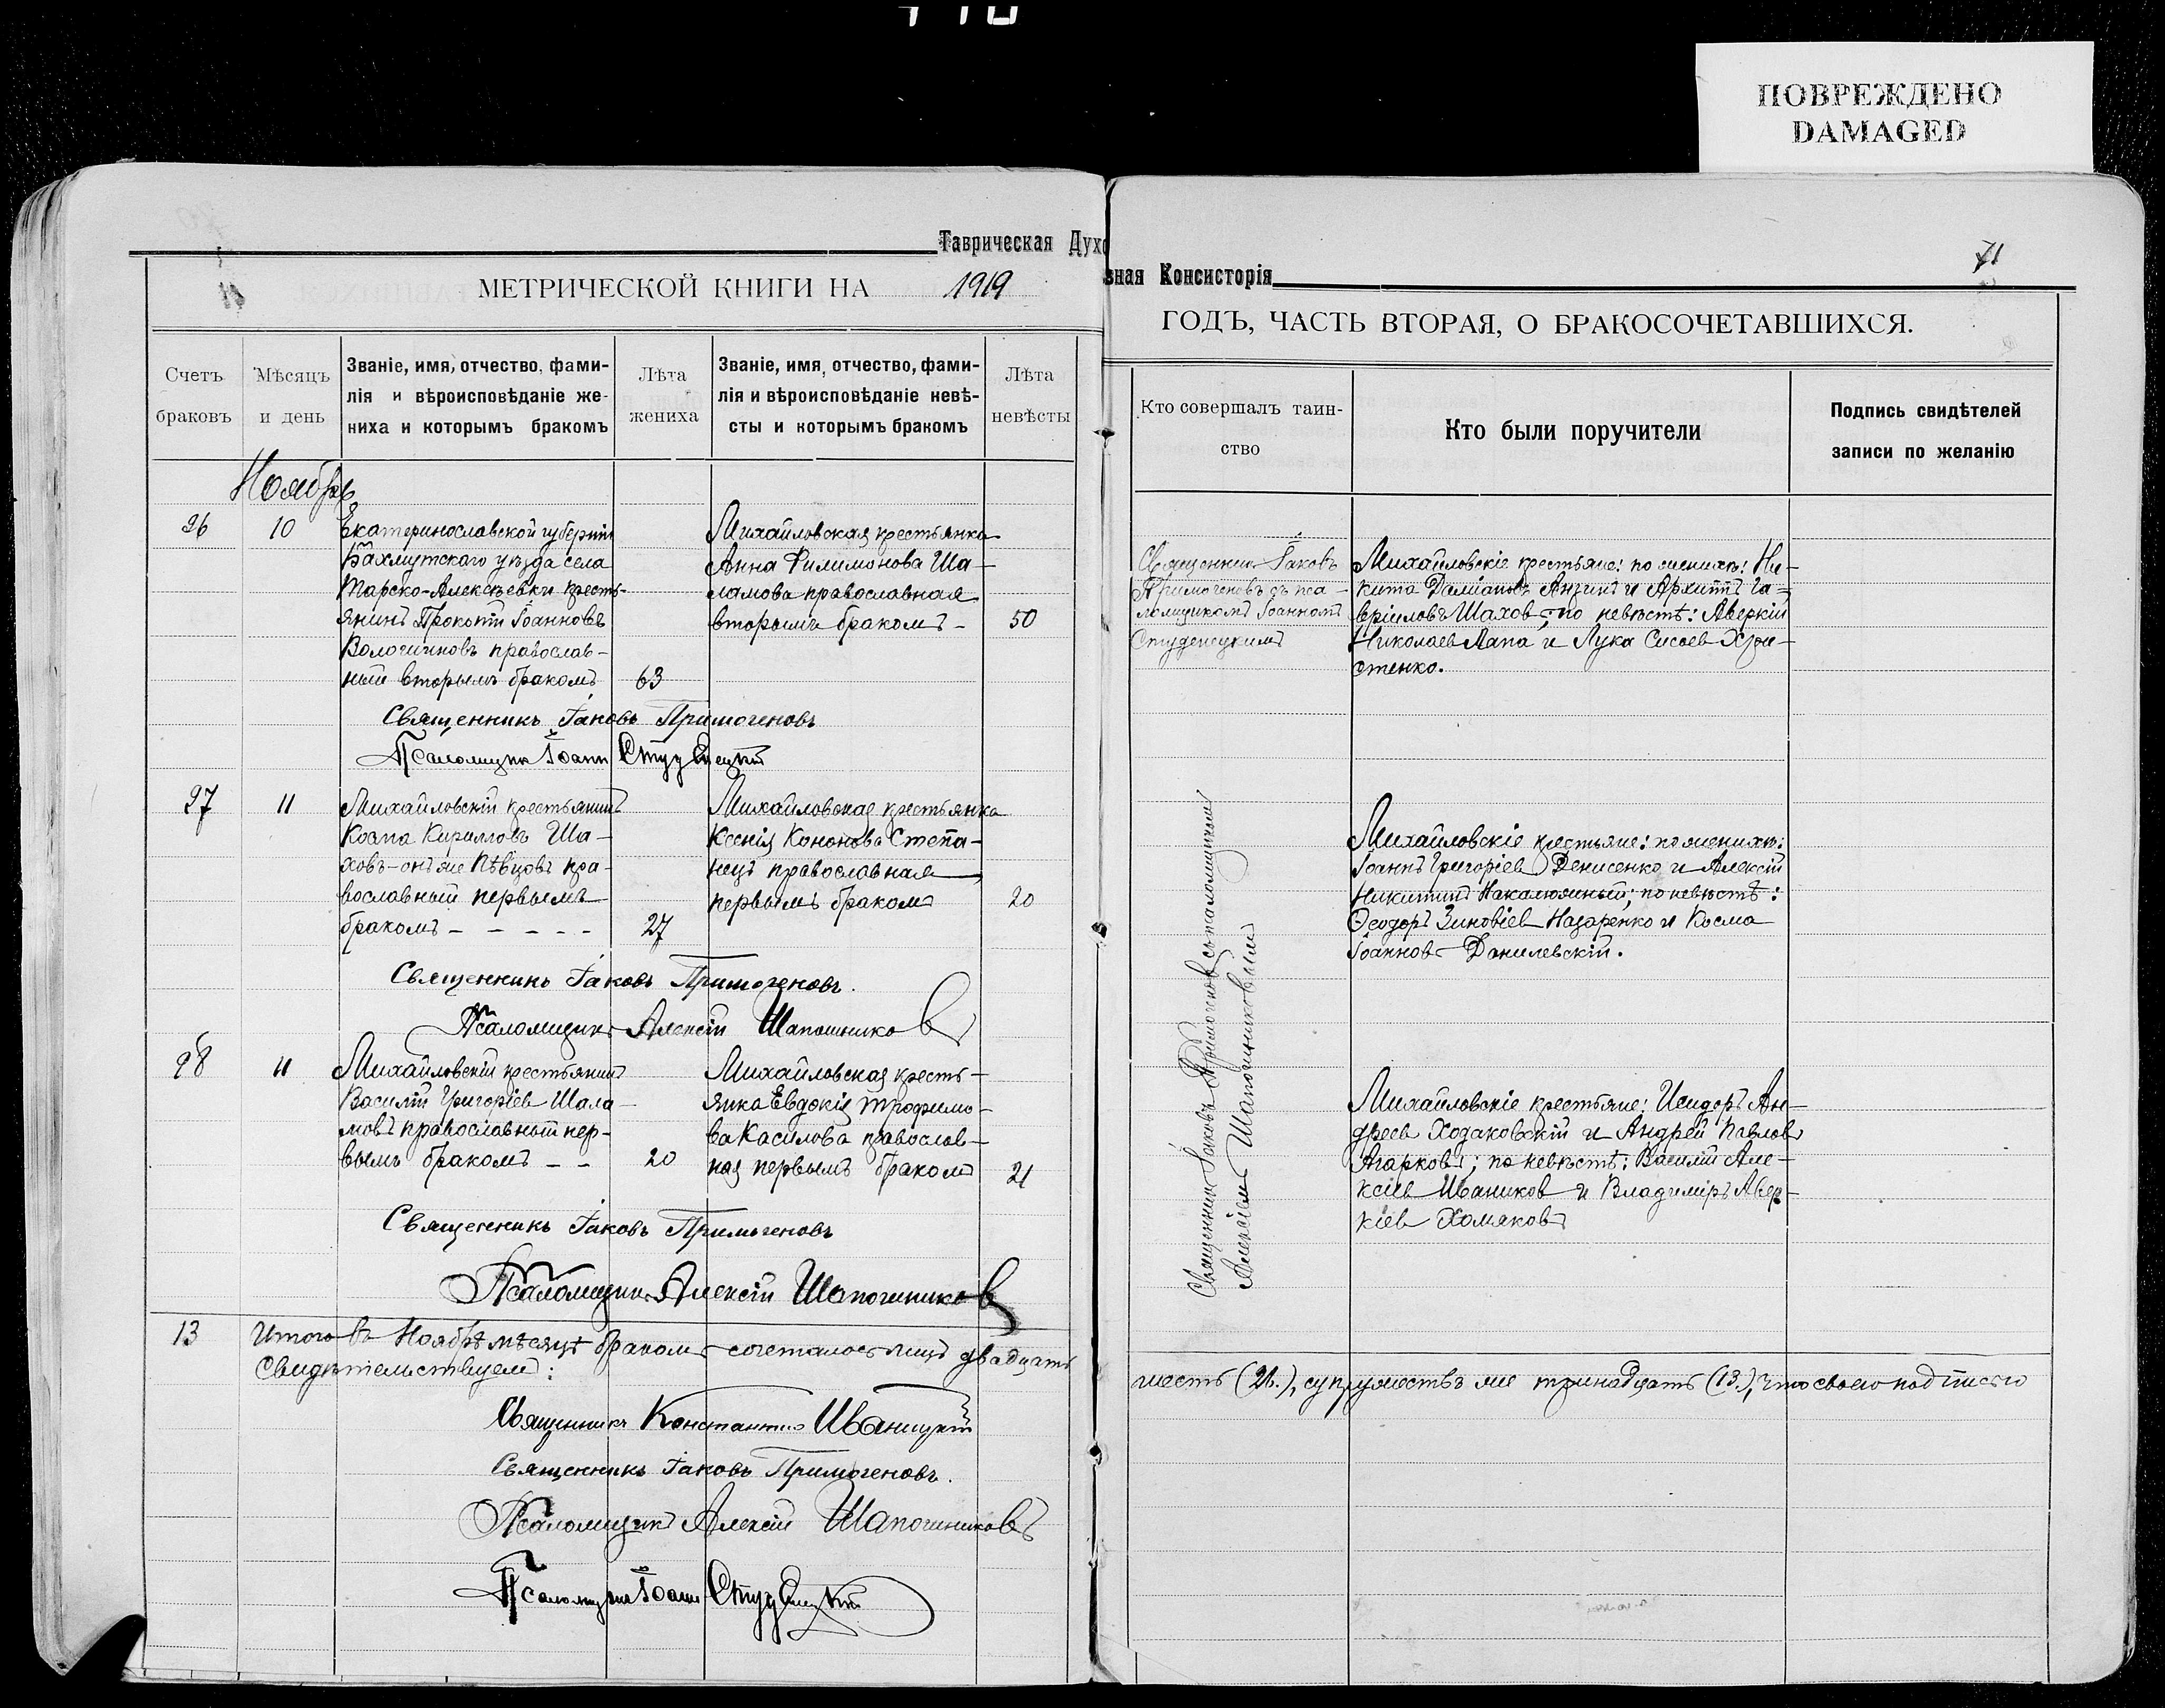 ПОВРЕЖДЕНО
DAMAGED
Таврическая Духо
вная Консисторія
71
МЕТРИЧЕСКОЙ КНИГИ НА 1919
ГОДЪ, ЧАСТЬ ВТОРАЯ, О БРАКОСОЧЕТАВШИХСЯ.
Счетъ
браковъ
Мѣсяцъ
и день
Званіе, имя, отчество, фами-
лія и вѣроисповѣданіе же-
ниха и которымъ бракомъ
Лѣта
жениха
Званіе, имя, отчество, фами-
лія и вѣроисповѣданіе невѣ-
сты и которымъ бракомъ
Лѣта
невѣсты
Кто совершалъ таин-
ство
Кто были поручители
Подпись свидѣтелей
записи по желанію
Ноябрь
26
10
Екатеринославской губерніи
Бахмутскаго уѣзда села
Марско-Алексѣевки кресть-
янинъ Прокопій Іоанновъ
православ-
ный вторымъ бракомъ
63
Михайловская крестьянка
Анна Филимонова Ша-
ламова православная
вторымъ бракомъ -
50
Священникъ Іаковъ
Примогеновъ съ пса-
ломщикомъ Іоанномъ
Студенецкимъ
Михайловскіе крестьяне: по женихѣ: Ни-
кита Даміановъ и Архиппъ Га-
вріиловъ Шаховъ; по невѣстѣ: Аверкій
Николаевъ Лапа и Лука Сисоевъ Хри-
стенко.
Священникъ Іаковъ Примогеновъ
Псаломщикъ Іоаннъ Студенецкій
27
11
Михайловскій крестьянинъ
Козма Кирилловъ Ша-
ховъ - онъ же Пѣвцовъ пра-
вославный первымъ
бракомъ - - - - -
27
Михайловская крестьянка
Ксенія Кононова Степа-
нецъ православная
первымъ бракомъ
20
Священникъ Іаковъ Примогеновъ съ псаломщикомъ
Алексіемъ Шапошниковымъ
Михайловскіе крестьяне: по женихѣ:
Іоаннъ Григоріевъ Денисенко и Алексій
Никитинъ Накалюжный; по невѣстѣ:
Ѳеодоръ Зиновіевъ Назаренко и Косма
Іоанновъ Данилевскій.
Священникъ Іаковъ Примогеновъ.
Псаломщикъ Алексій Шапошниковъ
28
11
Михайловскій крестьянинъ
Василій Григоріевъ Шала-
мовъ православный пер-
вымъ бракомъ - -
20
Михайловская кресть-
янка Евдокія Трофимо-
ва Касилова православ-
ная первымъ бракомъ
21
Михайловскіе крестьяне: Исидоръ Ан-
дреевъ Ходаковскій и Андрей Павловъ
Агарковъ; по невѣстѣ: Василій Але-
ксіевъ Иваниковъ и Владиміръ Авер-
кіевъ Хомяковъ
Священникъ Іаковъ Примогеновъ
Псаломщикъ Алексій Шапошниковъ
13
Итого въ Ноябрѣ мѣсяцѣ бракомъ сочеталось лицъ двадцать
шесть (26.), супружествъ же тринадцать (13.), что своею подписью
Свидѣтельствуемъ:
Священникъ Константинъ Иваницкій
Священникъ Іаковъ Примогеновъ.
Псаломщикъ Алексій Шапошниковъ
Псаломщикъ Іоаннъ Студенецкій